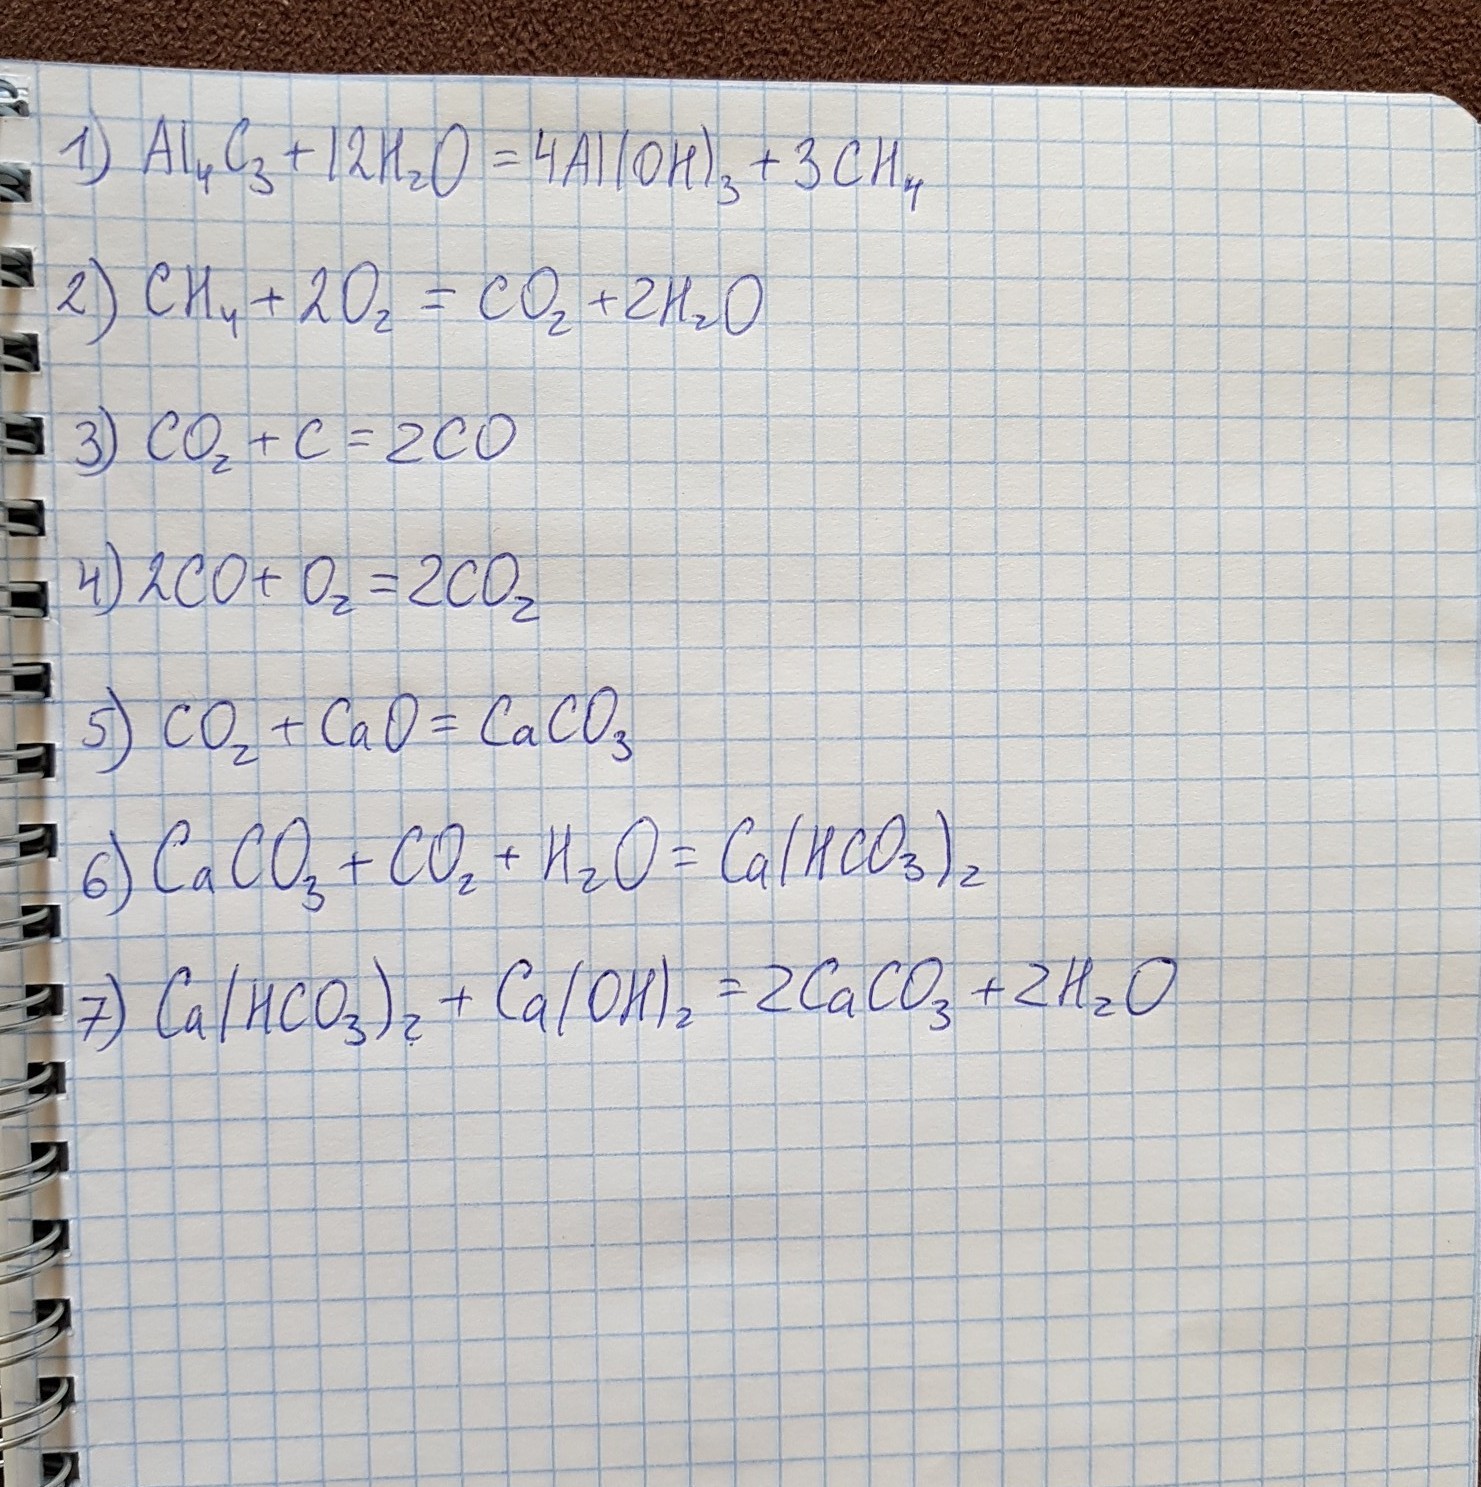 1) Al₄C₃ + 12H₂O = 4Al(OH)₃ + 3CH₄
2) CH₄ + 2O₂ = CO₂ + 2H₂O
3) CO₂ + C = 2CO
4) 2CO + O₂ = 2CO₂
5) CO₂ + CaO = CaCO₃
6) CaCO₃ + CO₂ + H₂O = Ca(HCO₃)₂
7) Ca(HCO₃)₂ + Ca(OH)₂ = 2CaCO₃ + 2H₂O